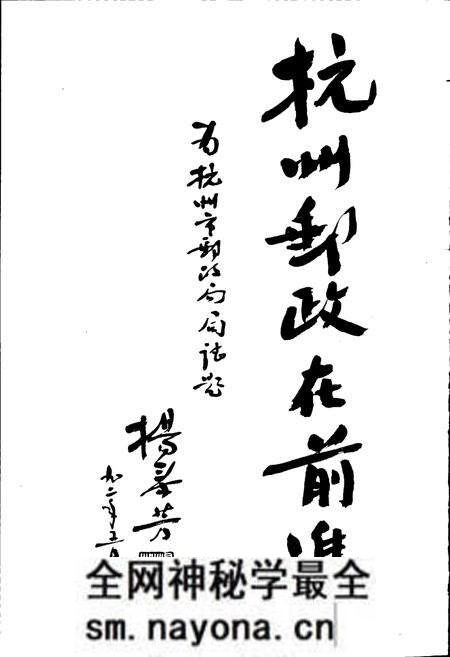 杭州郵政在前進
为杭州市郵政局局誌題
楊泰芳
九二年五月
全网神秘学最全
sm.nayona.cn